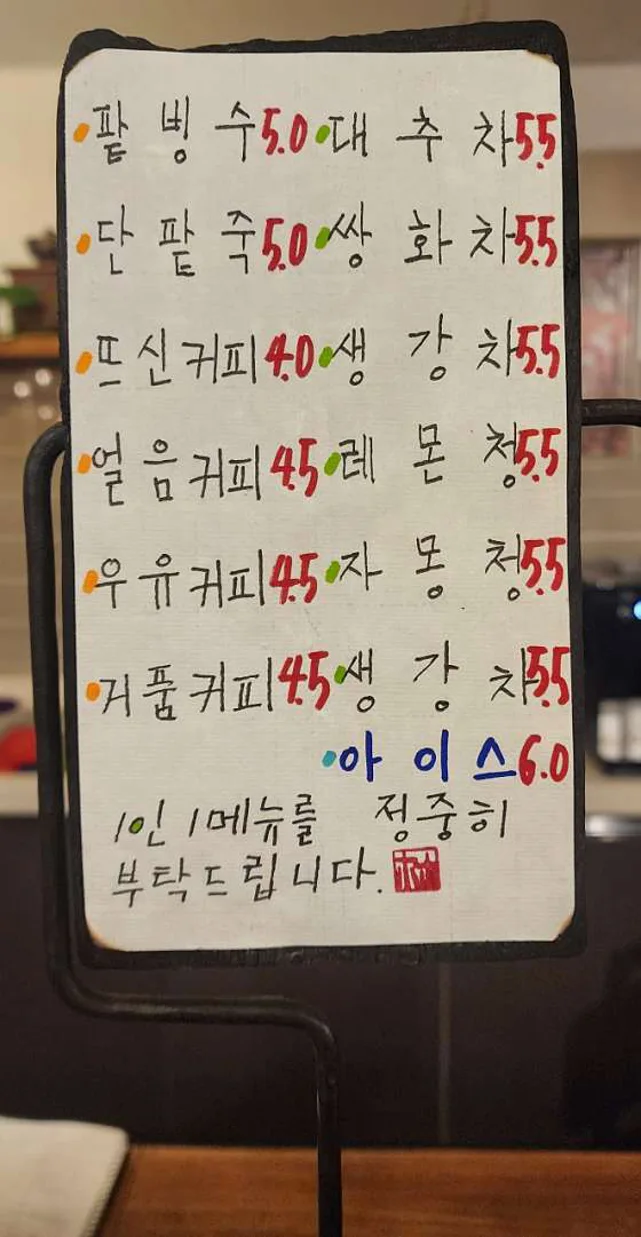 •팥 빙 수 5.0 •대 추 차 5.5
•단 팥 죽 5.0 •쌍 화 차 5.5
•뜨신커피 4.0 •생 강 차 5.5
•얼음커피 4.5 •레 몬 청 5.5
•우유커피 4.5 •자 몽 청 5.5
•거품커피 4.5 •생 강 차 5.5
•아 이 스 6.0
1인 1메뉴를 정중히
부탁드립니다.